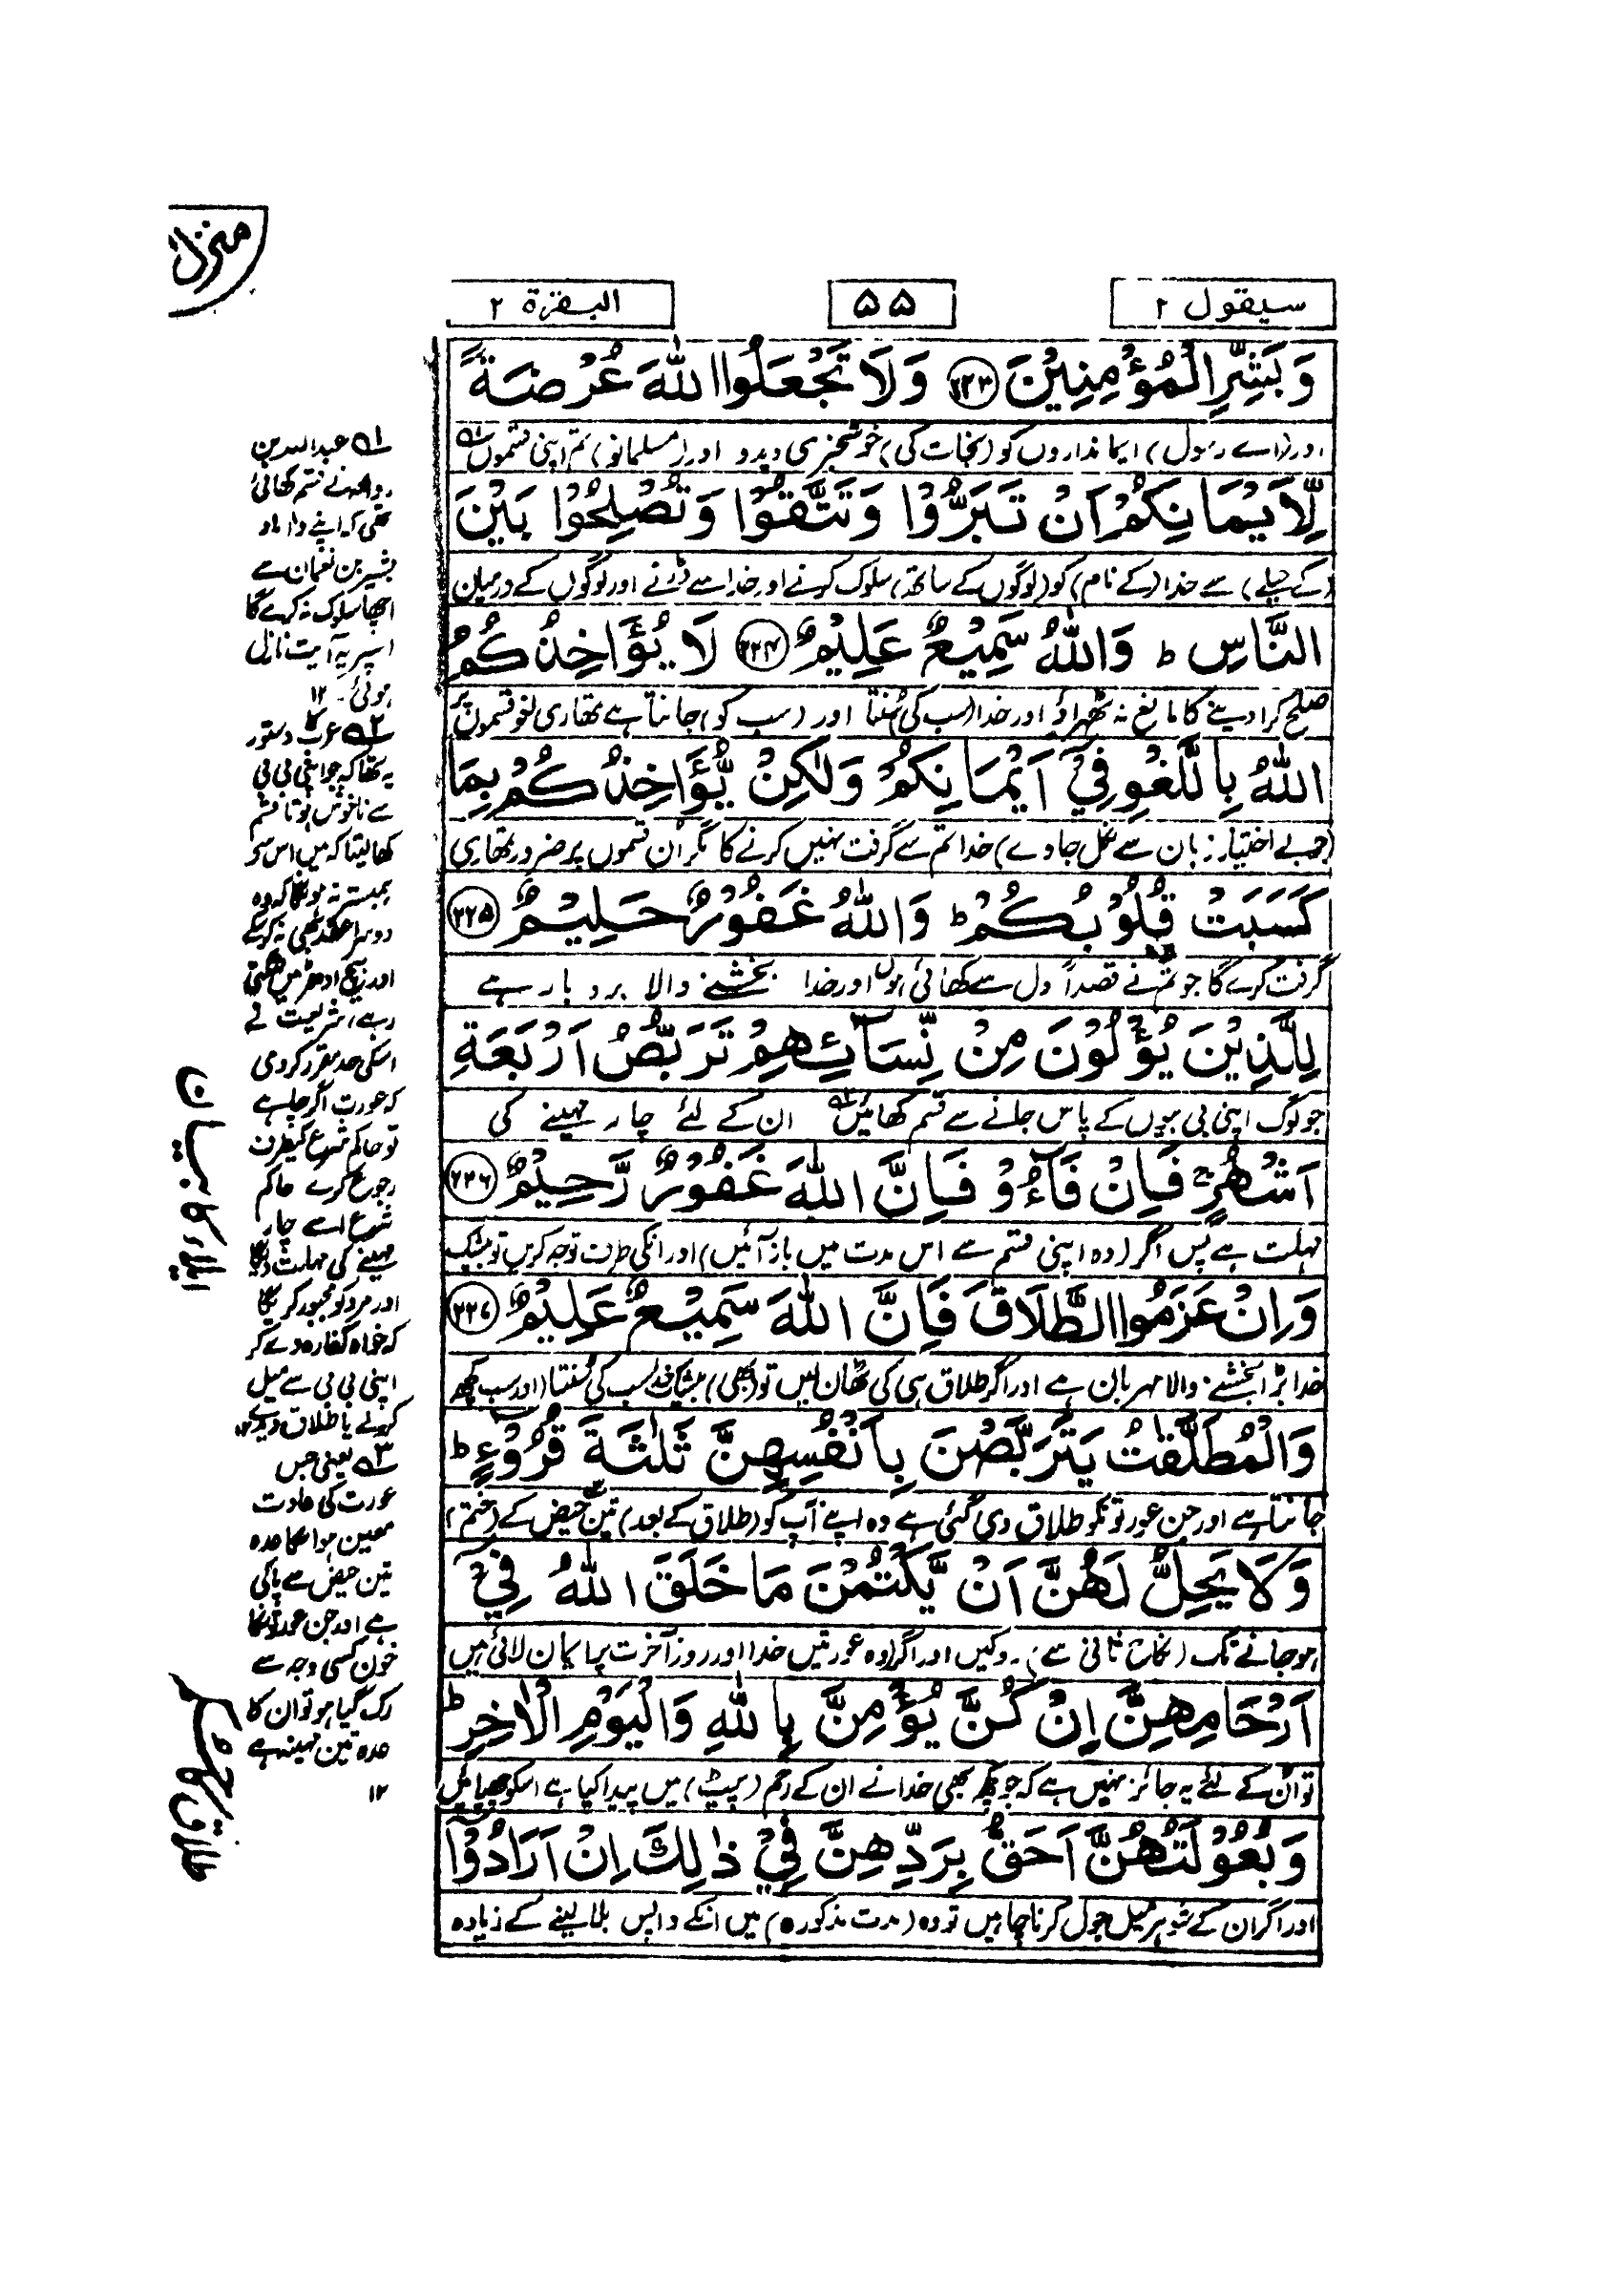 منزل ۱
سیقول ۲
۵۵
البقرة ۲
وَبَشِّرِ الْمُؤْمِنِيْنَ ۲۲۳ وَلَا تَجْعَلُوا اللّٰهَ عُرْضَةً
اور (اے رسول) ایمانداروں کو (نجات کی) خوشخبری دیدو اور (مسلمانو) تم اپنی قسموں ۱ے
لِّاَيْمَانِكُمْ اَنْ تَبَرُّوْا وَتَتَّقُوْا وَتُصْلِحُوْا بَيْنَ
(کے حیلے) سے خدا (کے نام) کو (لوگوں کے ساتھ) سلوک کرنے اور خدا سے ڈرنے اور لوگوں کے درمیان
النَّاسِ ط وَاللّٰهُ سَمِيْعٌ عَلِيْمٌ ۲۲۴ لَا يُؤَاخِذُكُمُ
صلح کرا دینے کا مانع نہ ٹھہراؤ اور خدا (سب کی) سُنتا اور (سب کو) جانتا ہے تمھاری لغو قسموں پر
اللّٰهُ بِاللَّغْوِ فِيْٓ اَيْمَانِكُمْ وَلٰكِنْ يُّؤَاخِذُكُمْ بِمَا
(جو بے اختیار زبان سے نکل جاوے) خدا تم سے گرفت نہیں کرنے کا مگر اُن قسموں پر ضرور تمھاری
كَسَبَتْ قُلُوْبُكُمْ ط وَاللّٰهُ غَفُوْرٌ حَلِيْمٌ ۲۲۵
گرفت کرے گا جو تم نے قصداً دل سے کھائی ہوں اور خدا بخشنے والا بردبار ہے
لِلَّذِيْنَ يُؤْلُوْنَ مِنْ نِّسَآئِهِمْ تَرَبُّصُ اَرْبَعَةِ
جو لوگ اپنی بی بیوں کے پاس جانے سے قسم کھائیں ۲ے ان کے لئے چار مہینے کی
اَشْهُرٍ ج فَاِنْ فَآءُوْ فَاِنَّ اللّٰهَ غَفُوْرٌ رَّحِيْمٌ ۲۲۶
مہلت ہے پس اگر (وہ اپنی قسم سے اس مدت میں باز آئیں) اور انکی طرف توجہ کریں تو بیشک
وَاِنْ عَزَمُوا الطَّلَاقَ فَاِنَّ اللّٰهَ سَمِيْعٌ عَلِيْمٌ ۲۲۷
خدا بڑا بخشنے والا مہربان ہے اور اگر طلاق ہی کی ٹھان لیں تو (بھی) بیشک خدا سب کی سُنتا (اور سب کچھ
وَالْمُطَلَّقٰتُ يَتَرَبَّصْنَ بِاَنْفُسِهِنَّ ثَلٰثَةَ قُرُوْٓءٍ ط
جانتا ہے اور جن عورتونکو طلاق دی گئی ہے وہ اپنے آپ کو (طلاق کے بعد) تین ۳ے حیض کے (ختم)
وَلَا يَحِلُّ لَهُنَّ اَنْ يَّكْتُمْنَ مَا خَلَقَ اللّٰهُ فِيْٓ
ہو جانے تک (نکاح ثانی سے) روکیں اور اگر (وہ عورتیں خدا اور روز آخرت پر ایمان لائی ہیں
اَرْحَامِهِنَّ اِنْ كُنَّ يُؤْمِنَّ بِاللّٰهِ وَالْيَوْمِ الْاٰخِرِ ط
تو اُن کے لئے یہ جائز نہیں ہے کہ جو کچھ بھی خدا نے ان کے رحم (پیٹ) میں پیدا کیا ہے اسکو چھپائیں
وَبُعُوْلَتُهُنَّ اَحَقُّ بِرَدِّهِنَّ فِيْ ذٰلِكَ اِنْ اَرَادُوْٓا
اور اگر ان کے شوہر میل جول کرنا چاہیں تو وہ (مدت مذکورہ) میں انکے واپس بلا لینے کے زیادہ
۱ے عبداللہ بن
رواحہ نے قسم کھائی
تھی کہ اپنے داماد
بشیر بن نعمان سے
اچھا سلوک نہ کرے گا
اسپر یہ آیت نازل
ہوئی۔ ۱۲
۲ے عرب کا دستور
یہ تھا کہ جو اپنی بی بی
سے ناخوش ہوتا قسم
کھا لیتا کہ میں اس سے
ہمبستر نہ ہونگا کہ وہ
دوسرا عقد بھی نہ کر سکے
اور بیچ ادھر میں لٹکتی
رہے، شریعت نے
اسکی حد مقرر کر دی
کہ عورت اگر چاہے
تو حاکم شرع کیطرف
رجوع کرے حاکم
شرع اسے چار
مہینے کی مہلت دیگا
اور مرد کو مجبور کریگا
کہ خواہ کفارہ دے کر
اپنی بی بی سے میل
کرلے یا طلاق دیدے ۱۲
۳ے یعنی جس
عورت کی عادت
معین ہو اسکا عدہ
تین حیض سے پاکی
ہے اور جن عورتونکا
خون کسی وجہ سے
رک گیا ہو تو ان کا
عدہ تین مہینہ ہے
۱۲
ایلاء کا بیان
طلاق کا حکم